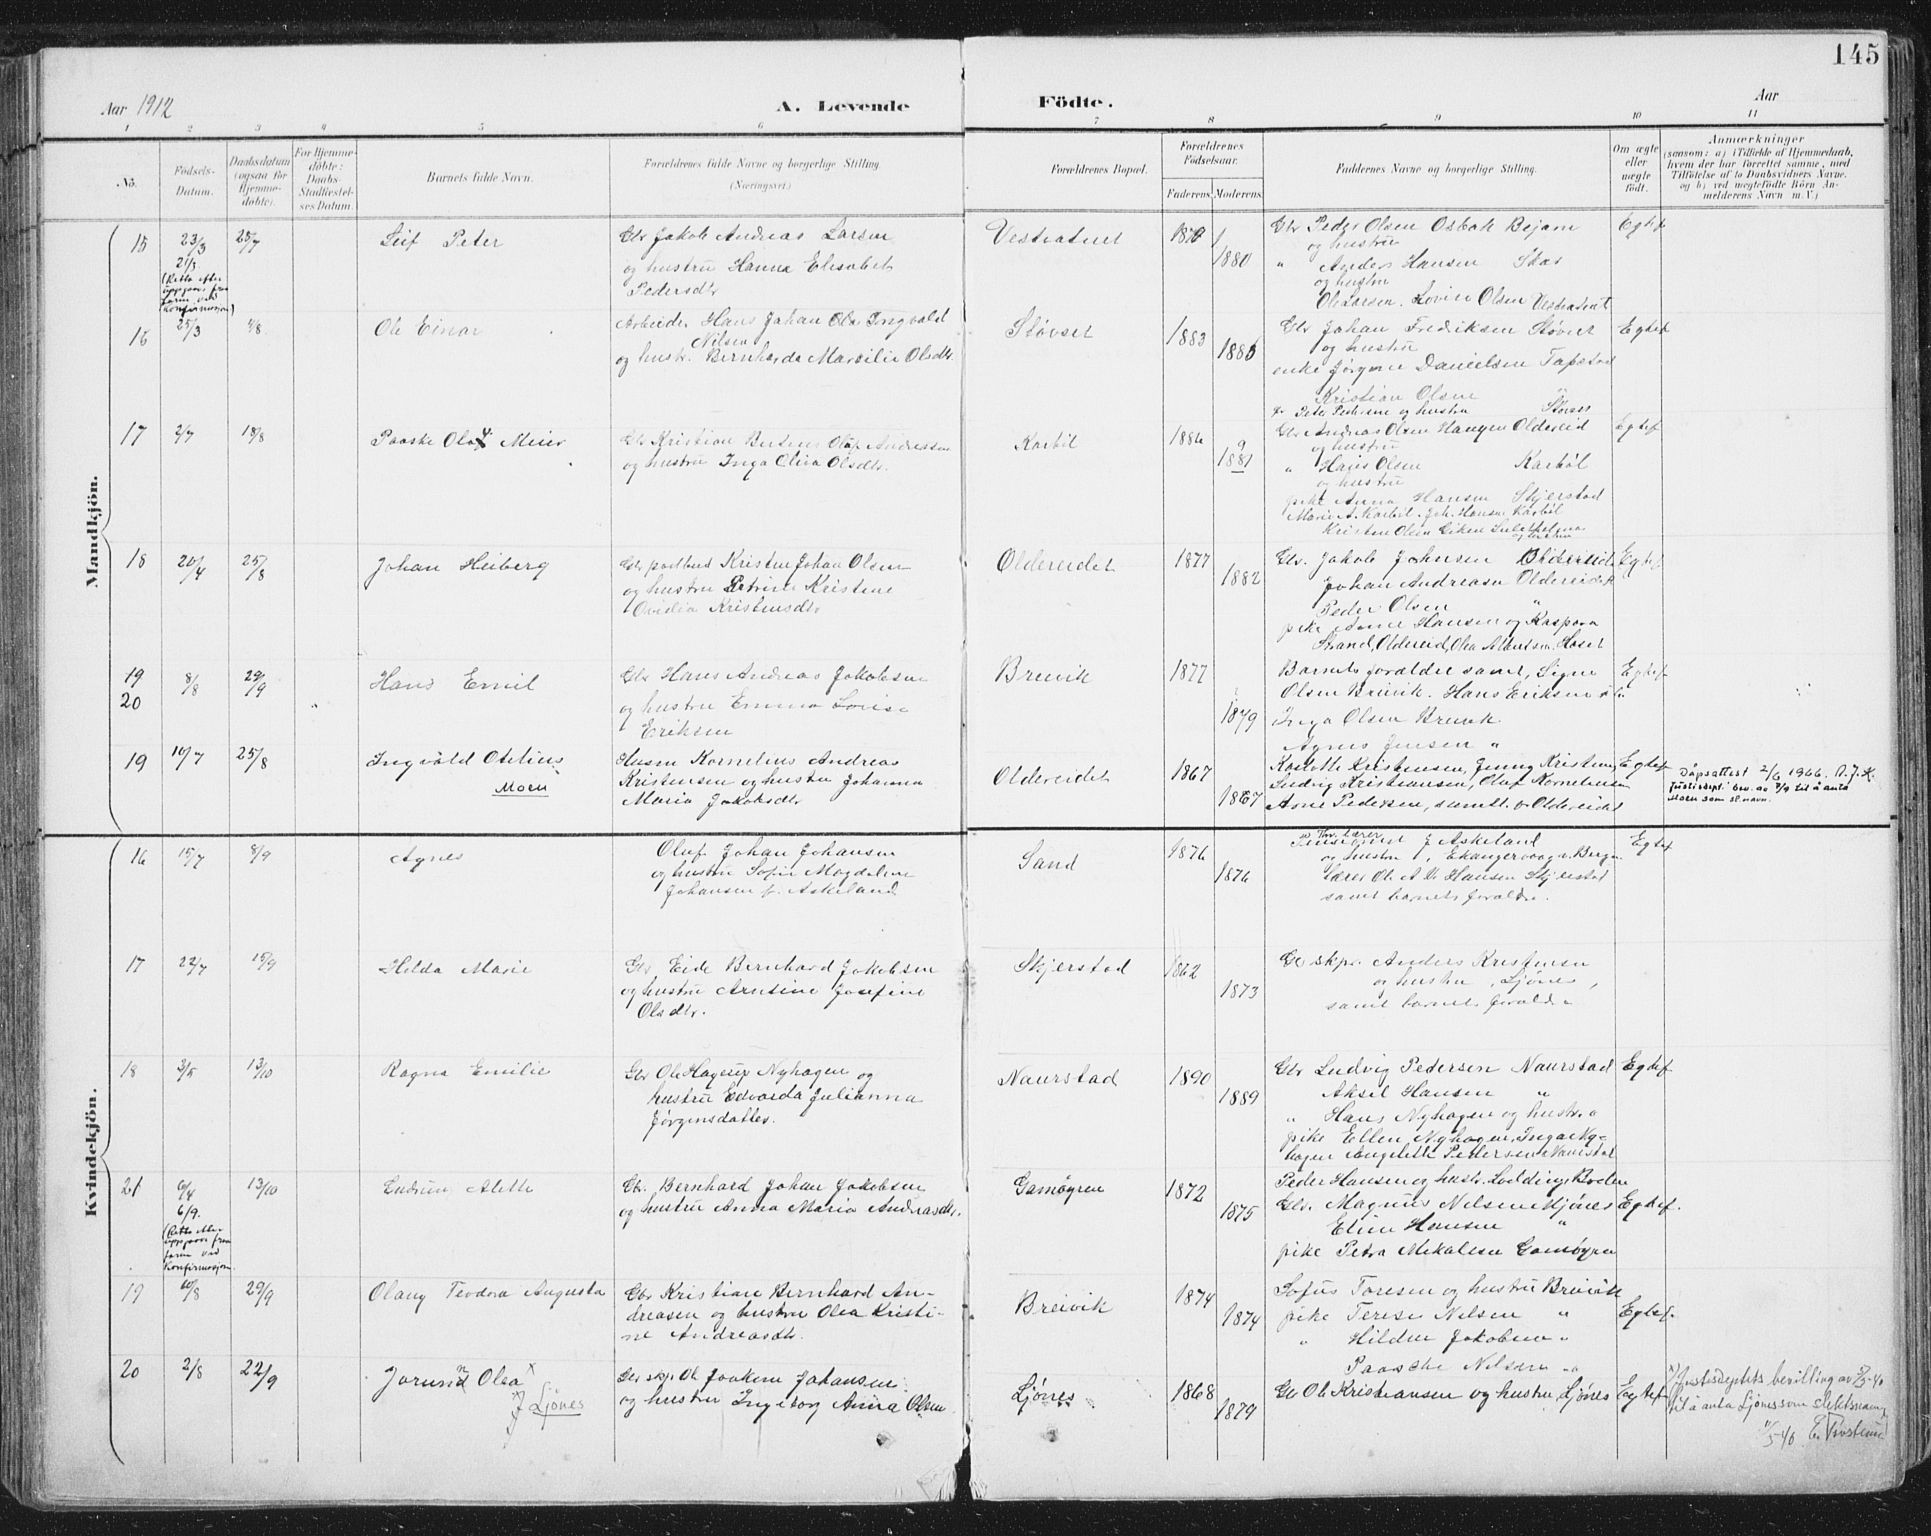 145
Aar 1912
A. Levende
Födte.
Aar
1 2 3 4 5 6 7 8 9 10 11
No.
Födsels-
Datum.
Daabsdatum
(ogsaa for
Hjemme-
døbte).
For Hjemme-
døbte:
Daabs-
Stadfæstel-
ses Datum.
Barnets fulde Navn.
Forældrenes fulde Navne og borgerlige Stilling
(Næringsvei.)
Forældrenes Bopæl.
Forældrenes
Fødselsaar.
Faderens. Moderens.
Faddernes Navne og borgerlige Stilling.
Om ægte
eller
uægte
født.
Anmærkninger
(saasom: a) i Tilfælde af Hjemmedaab,
hvem der har forrettet samme, med
Tilføielse af to Daabsvidners Navne,
og b) ved uægtefødte Børn An-
melderens Navn m. V.)
Mandkjön.
15 23/3 25/7 Leif Peter
21/3
Gbr Jakob Andreas Larsen
og hustru Hanna Elisabet
Pedersdtr
Vestvatnet
1880
Gbr Peder Olsen Osbak Bejarn
og hustru
" Anders Hansen Skar
og hustru
Lovise Olsen Vestvatnet
Egtef
16 25/3 Ole Einar
Arbeider Hans Johan Olai Ingvald
Nilsen
og hustr. Bernharda Marsilie Olsdtr
Støvset
1883
Gbr Johan Fredriksen Støvset
og hustru
enke Jørgine Danielsen
Kristian Olsen
Peter Pedersen og hustru
Egtef
17 2/7 18/8 Paaske Olaf Meier
Gbr Kristian Olaf Andreassen
og hustru Inga Olsdtr.
Karbøl
1886
1881
Gbr Andreas Olsen Haugen Oldereid
og hustru
" Hans Olsen Karbøl
og hustru
pike Anna Hansen Skjerstad
Marie A. Karbøl. Joh. Hansen Karbøl
18 20/4 25/8 Johan Heiberg
Gbr postbud Kristen Johan Olsen
og hustru Petrine Kristine
Ovidia Kristensdtr
Oldereidet
1877
1882
Gbr. Jakob Johnsen Oldereidet
Johan Andreasen Oldereidet
Peder Olsen "
pike Anne Hansen og Kaspara
Strand, Oldereid, Olea Albertsen, Hoset
Egtef
19
20
8/8 29/9 Hans Emil
Gbr Hans Andreas Jakobsen
og hustru Emma Lovise
Eriksen
Breivik
1877
1879
Barnets forældre samt, Signe
Olsen Breivik. Hans Eriksen
Inga Olsen Breivik
Agnes Jensen "
Egtef
19 10/7 25/8 Ingvald Otelius
Moen
Husm Kornelius Andreas
Kristensen og hustru Johanna
Maria Jakobsdtr
Oldereidet
1867
1867
Karlotte Kristensen, Jenny Kristensen
Ludvig Kristiansen, Oluf Kornelinsen
Arne Pedersen, samtl. v. Oldereidet
Egtef
Dåpsattest 2/6 1966. O.J.H.
Justisdept. bev. av 7/9 til å anta
Moen som sl.navn.
Kvindekjön.
16 15/7 8/9 Agnes
Oluf Johan Johansen
og hustru Sofie Magdalene
Johansen f. Askeland
Sand
1876
1876
Pensioneret J Askeland
og hustru, Ekangervaag v. Bergen
lærer Ole A. V. Hansen Skjerstad
samt barnets forældre.
Egtef
17 22/7 15/9 Hilda Marie
Gbr, Eide Bernhard Jakobsen
og hustru Arntine Josefine
Olsdtr.
Skjerstad
1862
1873
Gbr skpr. Anders Kristensen
og hustru, Ljønes,
samt barnets forældre
18 3/5 13/10 Ragna Emilie
Gbr Ole Hagerup Nyhagen og
hustru Edvarda Julianna
Jørgensdatter.
Naurstad
1890
1889
Gbr Ludvig Pedersen Naurstad
Aksel Hansen "
" Hans Nyhagen og hustru
pike Ellen Nyhagen, Inga Ny-
hagen Angelette Pedersen Naurstad
Egtef
21 6/4 13/10 Gudrun Alette
6/9.
Gbr. Bernhard Johan Jakobsen
og hustru Anna Maria Andreasdtr.
Gamøyren
1872
1875
Peder Hansen og hustr. Lødding, Bodin
Gbr. Magnus Nilsen Mjønes
Eline Hansen "
pike Petra Mekalsen Gamøyren
Egtef.
19 10/8 29/9 Olaug Teodora Augusta
Gbr Kristian Bernhard An-
dreasen og hustru Olea Kristi-
ne Andreasdtr.
Breivik
1874
1874
Sofus Toresen og hustru Breivik
pike Terese Nilsen "
" Hildur Jakobsen "
Paasche Nilsen "
Egtef.
20 2/8 22/9 Jorunn Olea x
x) Ljönes
Gbr skpr Ole Joakim Johansen
og hustru Ingeborg Anna Olsen
Ljönes
1868
1879
Gbr Ole Kristiansen og hustru Ljönes
Egtef
x) Justisdeptets bevilling av 7/5-40
til å anta Ljönes som slektsnavn